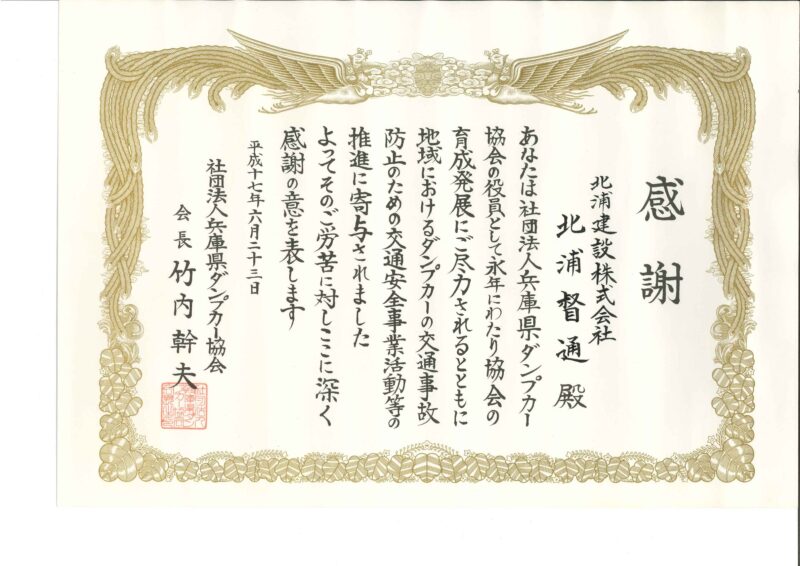 感謝
北浦建設株式会社
北浦督通殿
あなたは社団法人兵庫県ダンプカー
協会の役員として永年にわたり協会の
育成発展にご尽力されるとともに
地域におけるダンプカーの交通事故
防止のための交通安全事業活動等の
推進に寄与されました
よってそのご労苦に対しここに深く
感謝の意を表します
平成十七年六月二十三日
社団法人兵庫県ダンプカー協会
会長 竹内幹夫